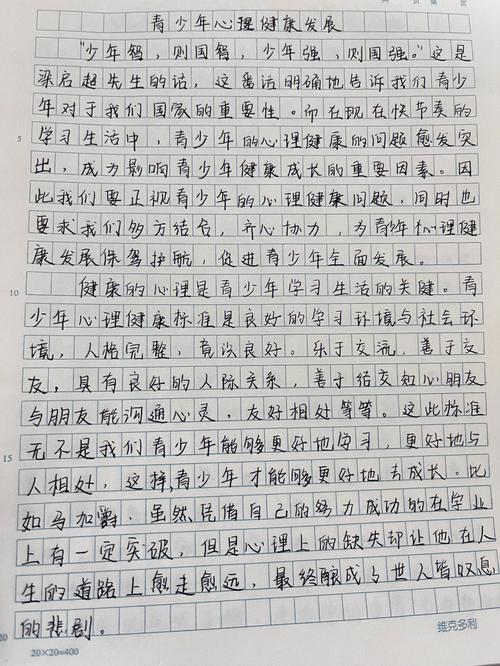 青少年心理健康发展
“少年智，则国智，少年强，则国强。”这是
梁启超先生的话，这番话明确地告诉我们青少
年对于我们国家的重要性。而在现在快节奏的
5 学习生活中，青少年的心理健康的问题愈发突
出，成为影响青少年健康成长的重要因素。因
此我们要正视青少年的心理健康问题，同时也
要求我们多方结合，齐心协力，为青少年心理健
康发展保驾护航，促进青少年全面发展。
10 健康的心理是青少年学习生活的关键。青
少年心理健康标准是良好的学习环境与社会环
境，人格完整，意识良好。乐于交流，善于交
友，具有良好的人际关系，善于结交知心朋友
与朋友能沟通心灵，友好相处等等。这些标准
15 无不是我们青少年能够更好地学习，更好地与
人相处，这样，青少年才能够更好地去成长。比
如马加爵，虽然凭借自己的努力成功的在学业
上有一定突破，但是心理上的缺失却让他在人
生的道路上愈走愈远，最终酿成与世人皆叹息
20 的悲剧。
20×20=400
维克多利